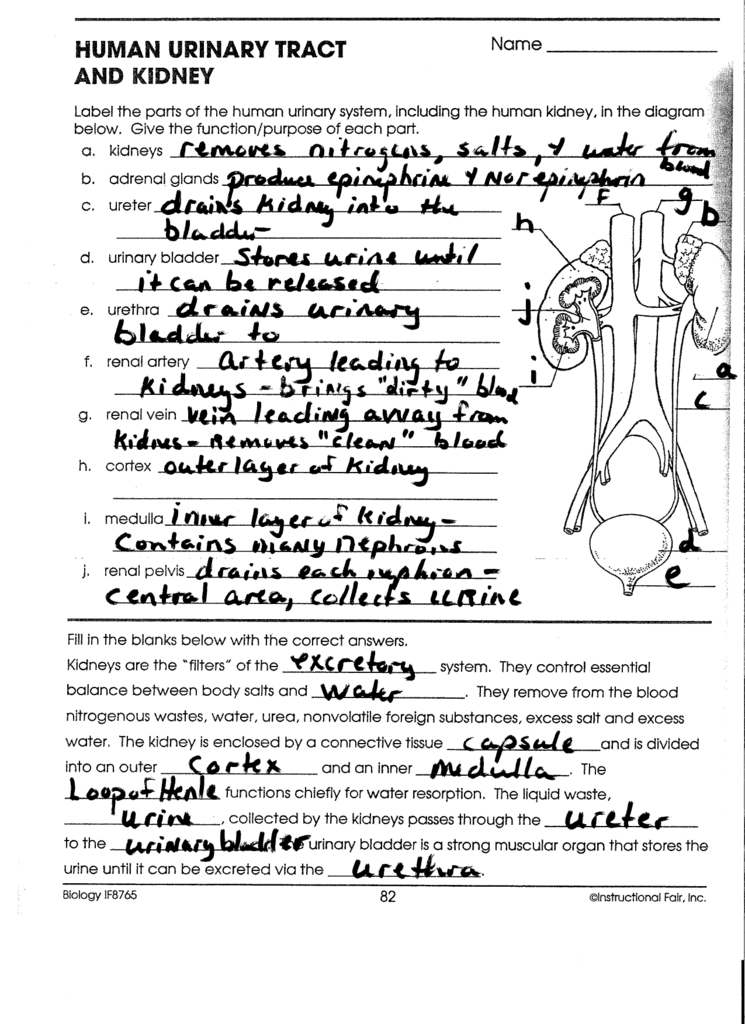 HUMAN URINARY TRACT
AND KIDNEY
Name
Label the parts of the human urinary system, including the human kidney, in the diagram
below. Give the function/purpose of each part.
a. kidneys removes nitrogens, salts, & water from
blood
b. adrenal glands produce epinephrine & Norepinephrin
c. ureter drains kidney into the
bladder
d. urinary bladder Stores urine until
it can be released
e. urethra drains urinary
bladder to
f. renal artery Artery leading to
kidneys - brings "dirty" blood
g. renal vein vein leading away from
kidnes - Removes "clean" blood
h. cortex outer layer of kidney
i. medulla inner layer of kidney -
Contains many nephrons
j. renal pelvis drains each nephron -
central area, collects urine
F
g
b
h
j
i
a
c
d
e
Fill in the blanks below with the correct answers.
Kidneys are the "filters" of the excretory system. They control essential
balance between body salts and water. They remove from the blood
nitrogenous wastes, water, urea, nonvolatile foreign substances, excess salt and excess
water. The kidney is enclosed by a connective tissue capsule and is divided
into an outer Cortex and an inner Medulla. The
Loop of Henle functions chiefly for water resorption. The liquid waste,
urine, collected by the kidneys passes through the ureter
to the urinary bladder urinary bladder is a strong muscular organ that stores the
urine until it can be excreted via the urethra.
Biology IF8765
82
©Instructional Fair, Inc.